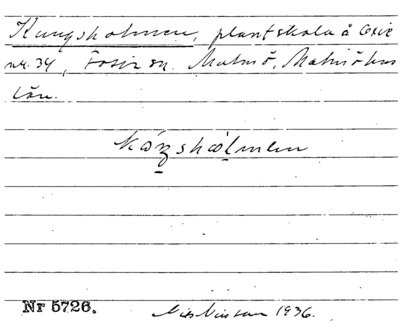 Kungsholmen, plantskola å Oxie
nr. 34, Fosie sn. Malmö, Malmöhus
län.
Nr 5726.
Nils Nilsson 1936.